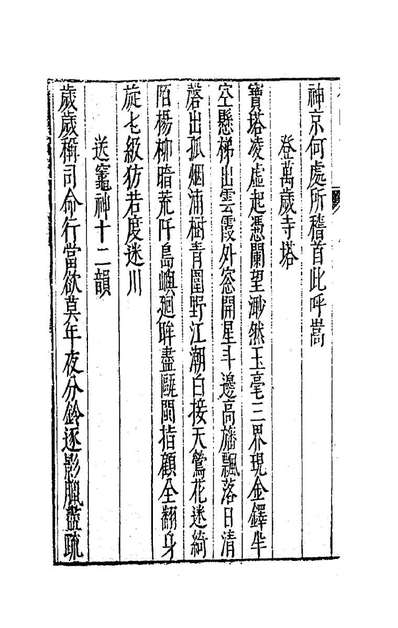 神京何處所稽首此呼嵩
登萬歲寺塔
寶塔凌虛起憑闌望渺然玉毫三界現金鐸半
空懸梯出雲霞外窓開星斗邊高旛飄落日清
磬出孤烟浦樹青圍野江潮白接天鶯花迷綺
陌楊柳暗荒阡島嶼廻眸盡甌閩指顧全翻身
旋七級彷若度迷川
送竈神十二韻
歲歲稱司命行當欲莫年夜分鈴逐影臘盡䟽